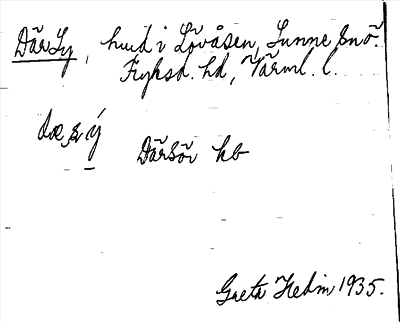 DärSy, hmd i Lövåsen, Sunne snö.
Fryksd. hd, Värml. l.
Därsör kb
Greta Hedin 1935.